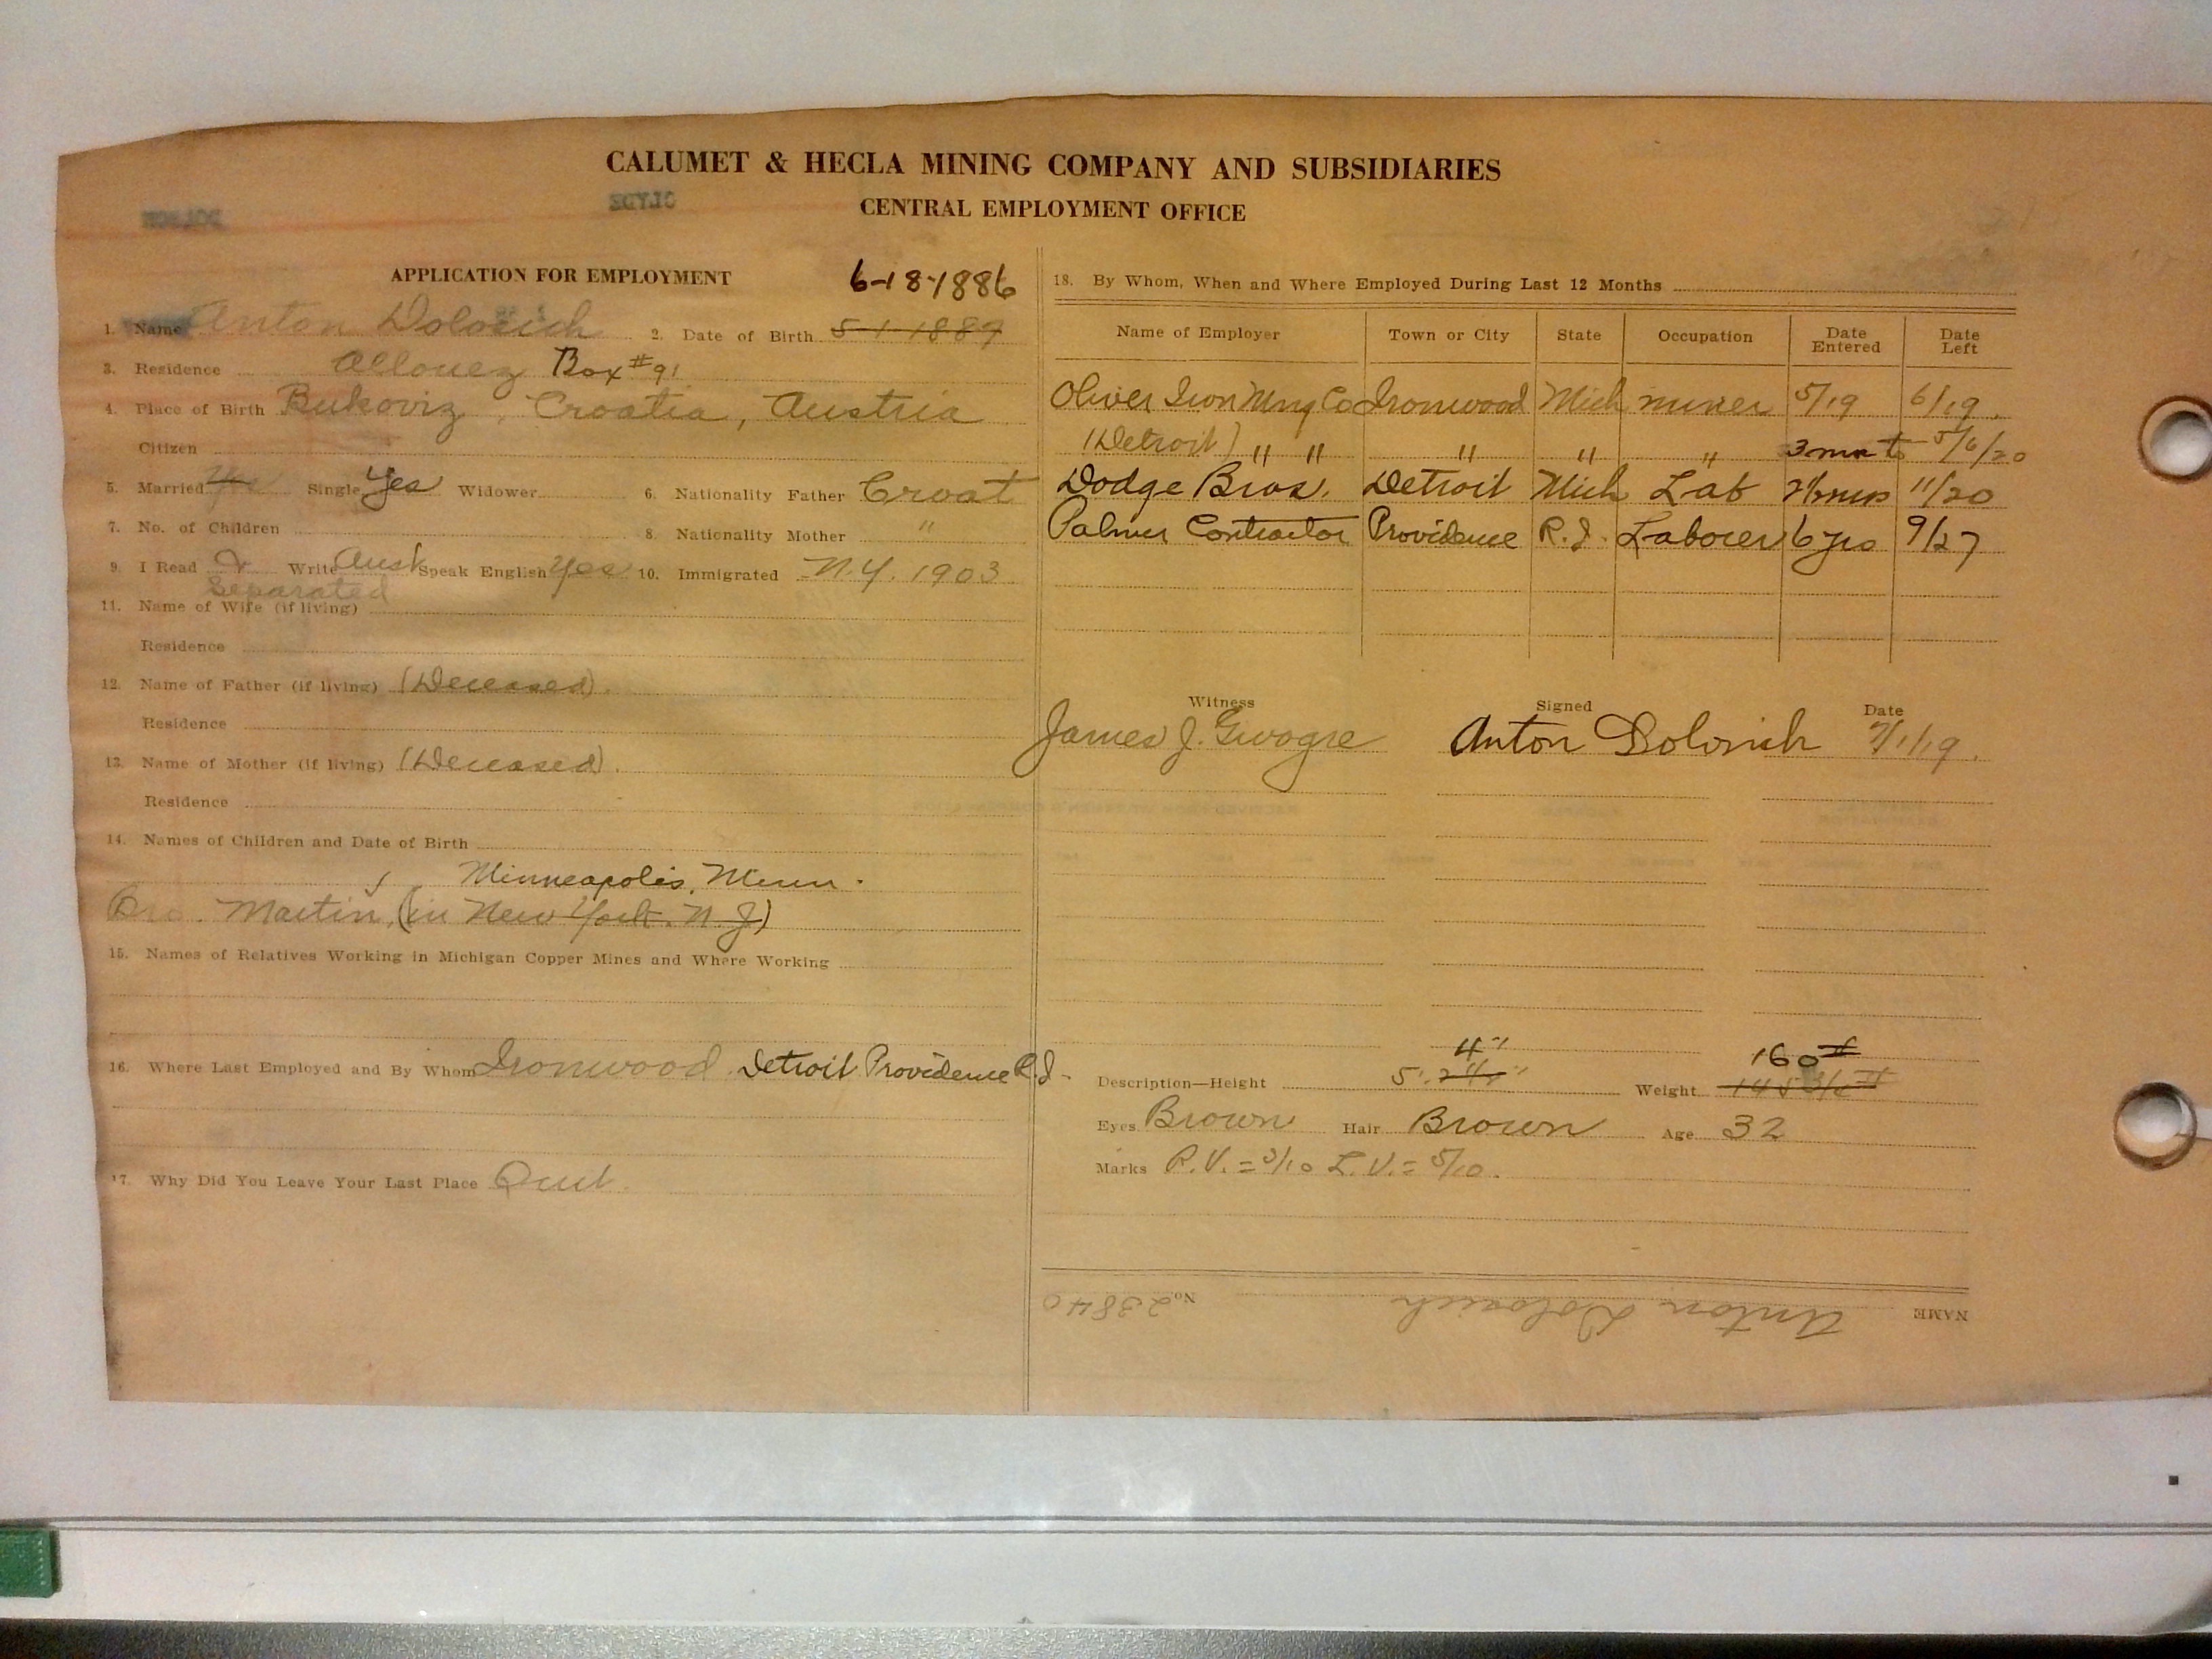 CALUMET & HECLA MINING COMPANY AND SUBSIDIARIES
CLYDE
CENTRAL EMPLOYMENT OFFICE
APPLICATION FOR EMPLOYMENT
6-18-1886
1. Name Anton Dolovich 2. Date of Birth 5-1-1887
3. Residence Allouez Box #91
4. Place of Birth Bukoviz, Croatia, Austria
Citizen
5. Married Yes Single Yes Widower 6. Nationality Father Croat
7. No. of Children 8. Nationality Mother "
9. I Read Write Aust Speak English Yes 10. Immigrated N.Y. 1903
Separated
11. Name of Wife (if living)
Residence
12. Name of Father (if living) (Deceased).
Residence
13. Name of Mother (if living) (Deceased).
Residence
14. Names of Children and Date of Birth
Minneapolis, Minn.
Bro. Martin, (in New York. N.J)
15. Names of Relatives Working in Michigan Copper Mines and Where Working
16. Where Last Employed and By Whom Ironwood Detroit Providence R.I.
17. Why Did You Leave Your Last Place Quit.
18. By Whom, When and Where Employed During Last 12 Months
Name of Employer Town or City State Occupation Date Entered Date Left
Oliver Iron Mng Co Ironwood Mich miner 5/19 6/19.
(Detroit) " " " " " 3 5/6/20
Dodge Bros. Detroit Mich Lab 11/20
Palmer Contractor Providence R.I. Laborer 6 yrs 9/27
Witness Signed Date
James J. Anton Dolovich 7/1/19.
4"
160#
Description—Height 5'. Weight
Eyes Brown Hair Brown Age 32
Marks R.V. = 3/10 L.V. = 5/10.
NAME Anton Dolovich No. 23840